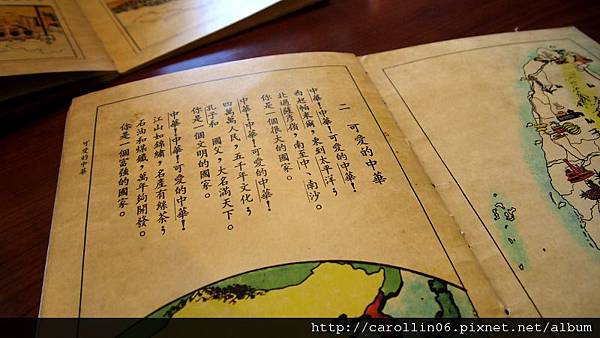 二 可愛的中華
中華!中華!可愛的中華!
西起帕米爾,東到太平洋;
北過薩彥嶺,南至中、南沙。
你是一個很大的國家。
中華!中華!可愛的中華!
四萬萬人民,五千年文化;
孔子和 國父,大名滿天下。
你是一個文明的國家。
中華!中華!可愛的中華!
江山如錦繡,名產有絲茶;
石油和煤鐵,萬年夠開發。
你是一個富強的國家。
可愛的中華
http://carollin06.pixnet.net/album